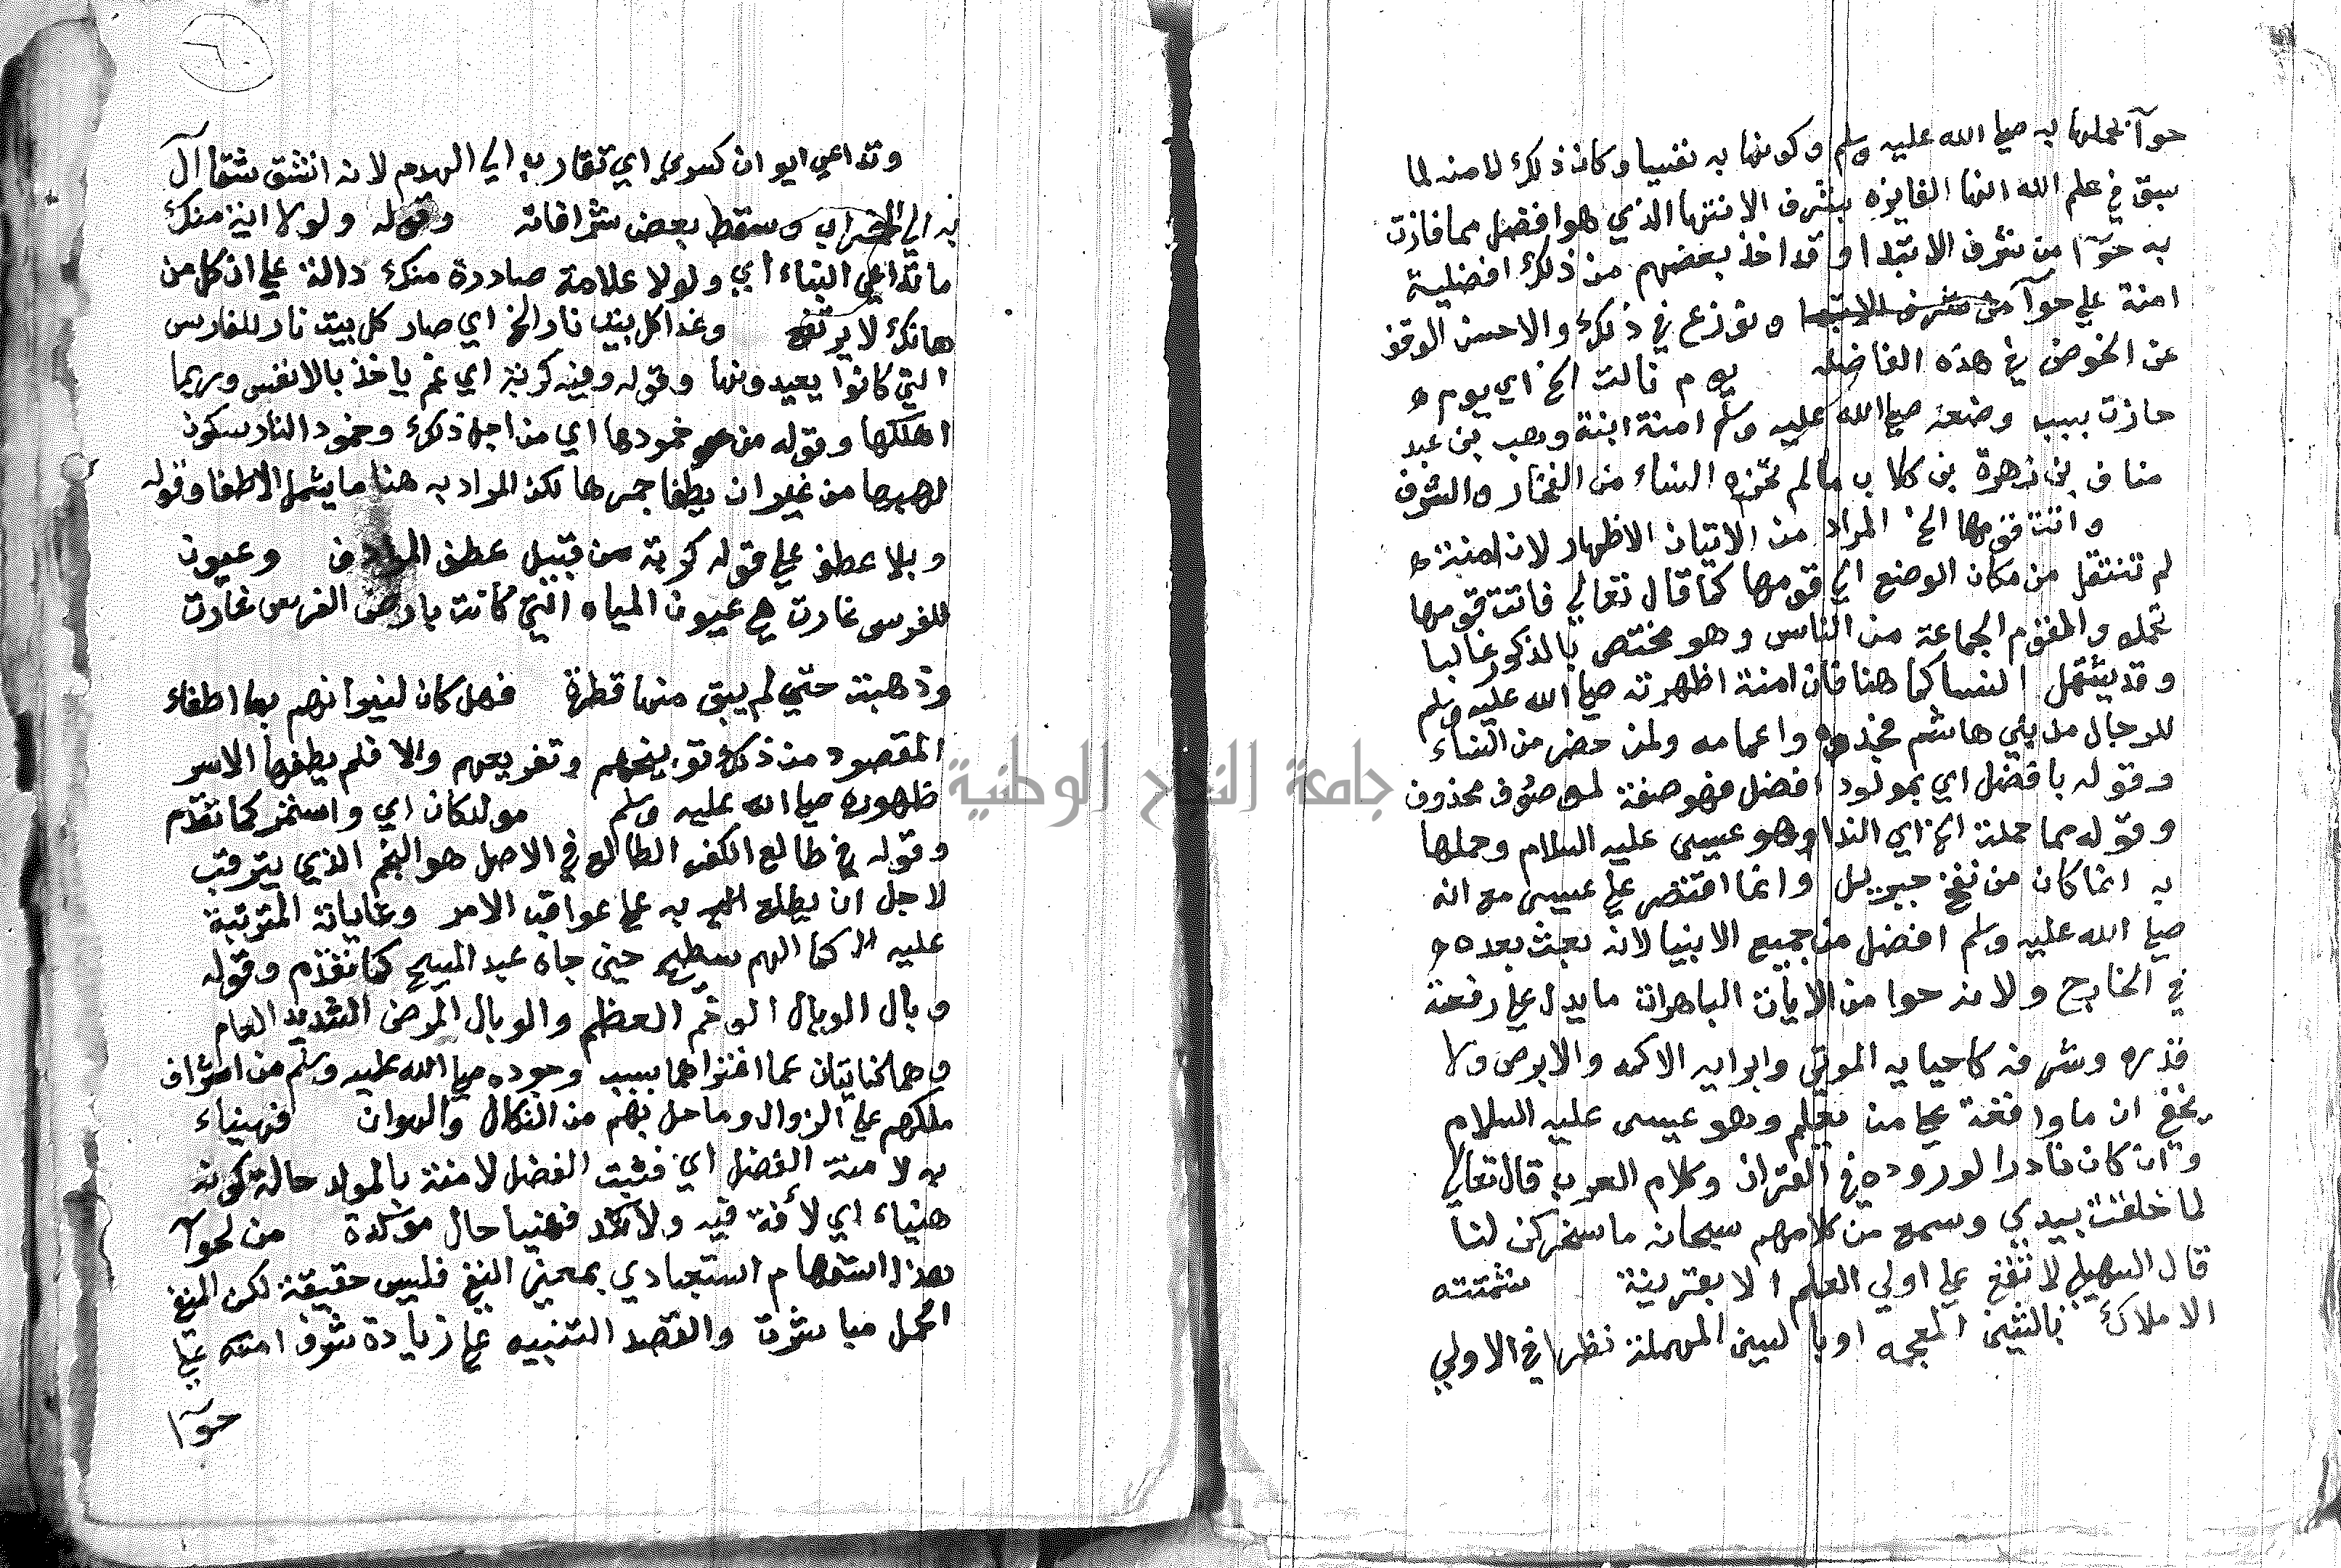 وتداعي ايوان كسري اي تقاربه الي الهدم لانه انشق شقا آل
به الي الخراب وسقط بعض شرافاته وقوله ولولا اية منك
ما تداعي البناء اي ولولا علامة صادرة منك دالة علي ان كل من
هانك لا يرتفع وغدا كل بيت نار الخ اي صار كل بيت نار للفارس
التي كانوا يعبدونها وقوله وفيه كربة اي غم ياخذ بالانفس وربما
اهلكها وقوله من خمودها اي من اجل ذلك وخمود النار سكون
لهبها من غير ان يطفا جمرها لكن المراد به هنا ما يشمل الاطفا وقوله
وبلا عطف علي قوله كربة من قبيل عطف المرادف وعيون
للفرس غارت هي عيون المياه التي كانت بارض الفرس غارت
وذهبت حتي لم يبق منها قطرة فهل كان لنيرانهم بها اطفاء
المقصود من ذلك توبيخهم وتقريعهم والا فلم يطفها الاسر
ظهوره صلي الله عليه وسلم مولد كان اي واستمر كما تقدم
وقوله في طالع الكفر الطالع في الاصل هو النجم الذي يترقب
لاجل ان يطلع به علي عواقب الامر وغاياته المترتبة
عليه كما الهم سطيح حين جاه عبد المسيح كما تقدم وقوله
وبال الوبال الوخم العظم والوبال المرض الشديد العام
وهما كنايتان عما اعتراهما بسبب وجوده صلي الله عليه وسلم من اشراف
ملكهم علي الزوال وما حل بهم من النكال والهوان فهنياء
به لامنة الفضل اي فثبت الفضل لامنة بالمولد حالة كونه
هنياء اي لا آفة فيه ولا نكد فهنيا حال موكدة من لحوآ
هذا استفهام استبعادي بمعني النفي فليس حقيقة لكن المنفي
الحمل مباشرة والقصد التنبيه علي زيادة شرف امنة علي
حوآ
حوآ بحملها به صلي الله عليه وسلم وكونها به نفسيا وكان ذلك لامنه لما
سبق في علم الله انها الفايزه بشرف الانتها الذي هو افضل مما فازت
به حوآ من شرف الابتدا وقد اخذ بعضهم من ذلك افضلية
امنة علي حوآ ونوزع في ذلك والاحسن الوقف
عن الخوض في هذه الفاضله يوم نالت الخ اي يوم
حازت بسبب وضعه صلي الله عليه وسلم امنة ابنة وهب بن عبد
مناف بن زهرة بن كلاب ما لم تحزه النساء من الفخار والشرف
واتت قومها الخ المراد من الاتيان الاظهار لان امنة
لم تنتقل من مكان الوضع الي قومها كما قال تعالي فاتت قومها
تحمله والقوم الجماعة من الناس وهو مختص بالذكور غالبا
وقد يشمل النسا كما هنا فان امنة اظهرته صلي الله عليه وسلم
للرجال من بني هاشم واعمامه ولمن حضر من النساء
وقوله بافضل اي بمولود افضل فهو صفة لموصوف محذوف
وقوله مما حملت الخ اي وهو عيسي عليه السلام وحملها
به انما كان من نفخ جبريل وانما اقتصر علي عيسي مع انه
صلي الله عليه وسلم افضل من جميع الانبيا لانه بعث بعده
في الخارج ولانه حوا من الايات الباهرات ما يدل علي رفعة
قدره وشرفه كاحيايه الموتي وابرايه الاكمه والابرص ولا
يخفي ان ما واقعة علي من يعلم وهو عيسي عليه السلام
وان كان نادرا لوروده في القران وكلام العرب قال تعالي
لما خلقت بيدي وسمع من كلامهم سبحان ما سخركن لنا
قال السهيلي لا تقع علي اولي العلم الا بقرينة شمتته
الاملاك بالشين المعجمه او بالسين المهملة نظرا في الاولي